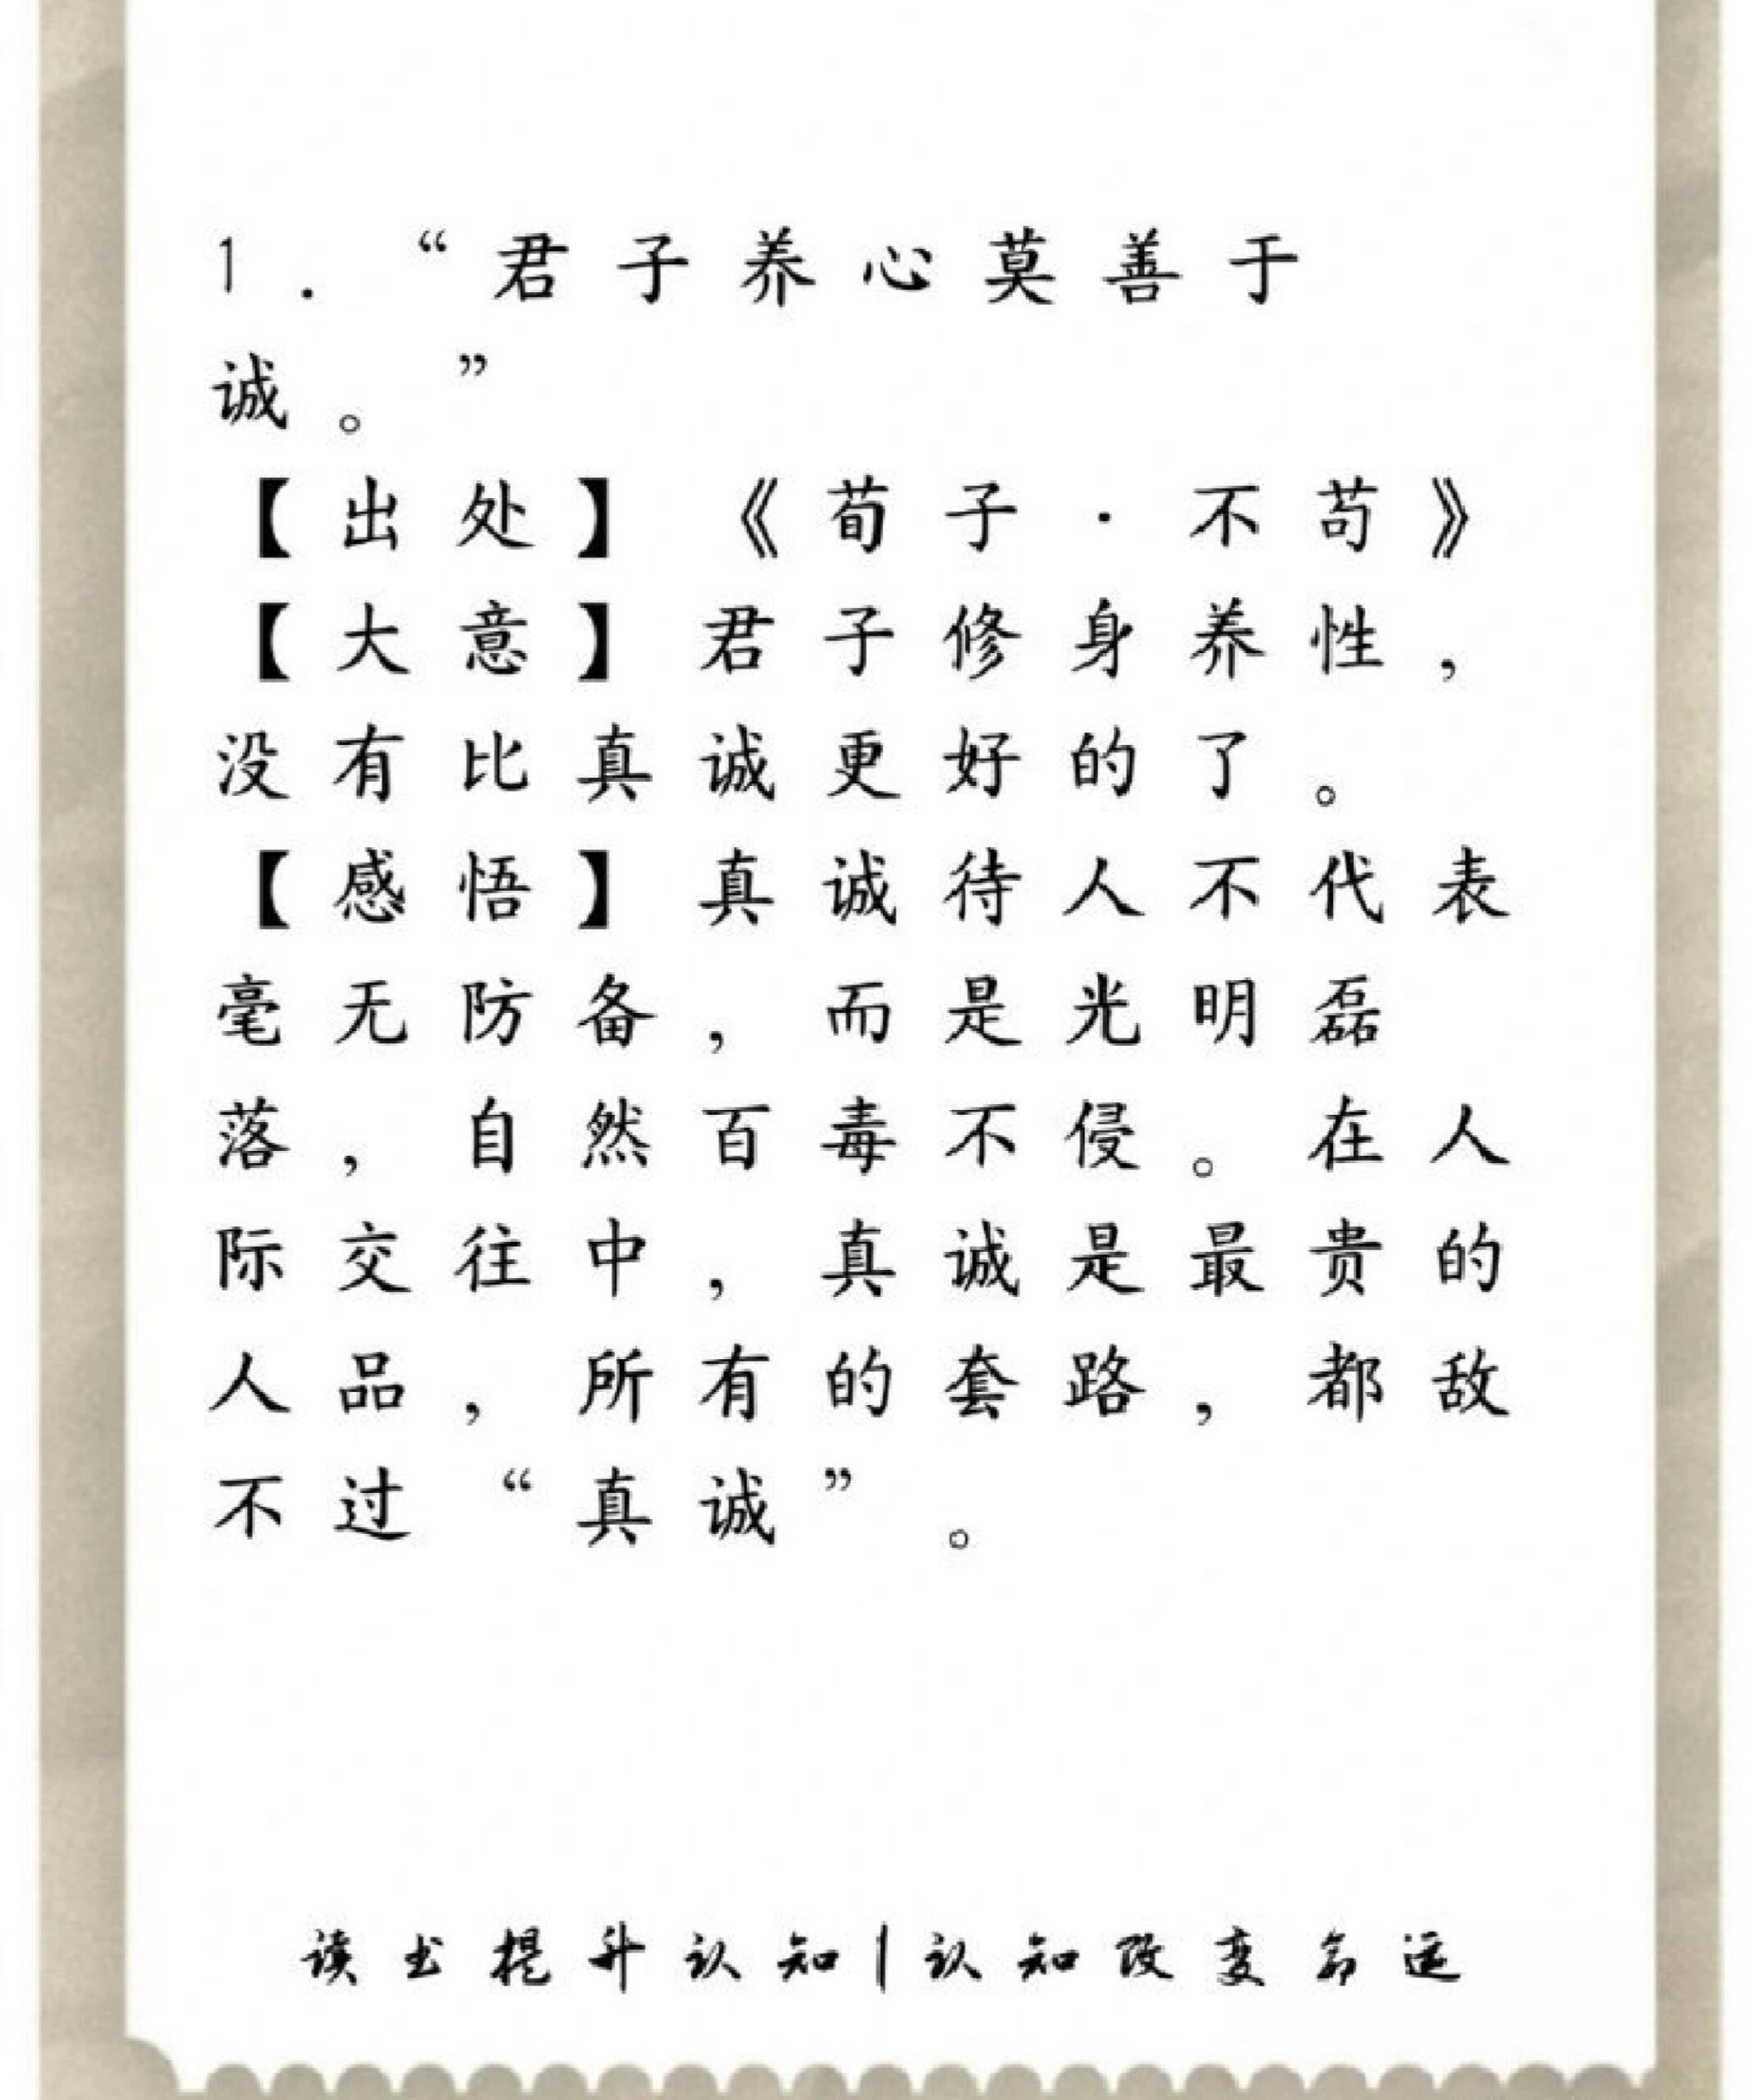 1.“君子养心莫善于
诚。”
【出处】《荀子·不苟》
【大意】君子修身养性，
没有比真诚更好的了。
【感悟】真诚待人不代表
毫无防备，而是光明磊
落，自然百毒不侵。在人
际交往中，真诚是最贵的
人品，所有的套路，都敌
不过“真诚”。
读书提升认知|认知改变命运